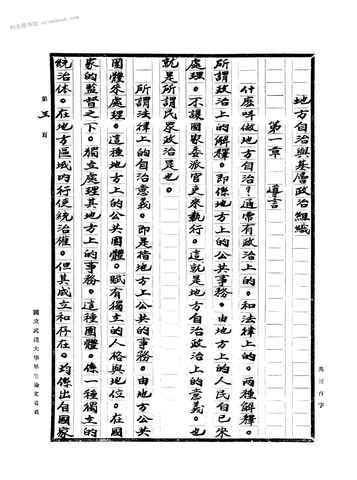 地方自治與基層政治組織
第一章　導言
什麼叫做地方自治？通常有政治上的。和法律上的。兩種解釋。
所謂政治上的解釋。即係地方上的公共事務。由地方上的人民自己來
處理。不讓國家委派官吏來執行。這就是地方自治政治上的意義。也
就是所謂民眾政治是也。
所謂法律上的自治意義。即是指地方上公共的事務。由地方公共
團體來處理。這種地方上的公共團體。賦有獨立的人格與地位。在國
家的監督之下。獨立處理其地方上的事務。這種團體。係一種獨立的
統治体。在地方區域內行使統治權。但其成立和存在。均係出自國家
第　頁
國立武漢大學畢業論文稿紙